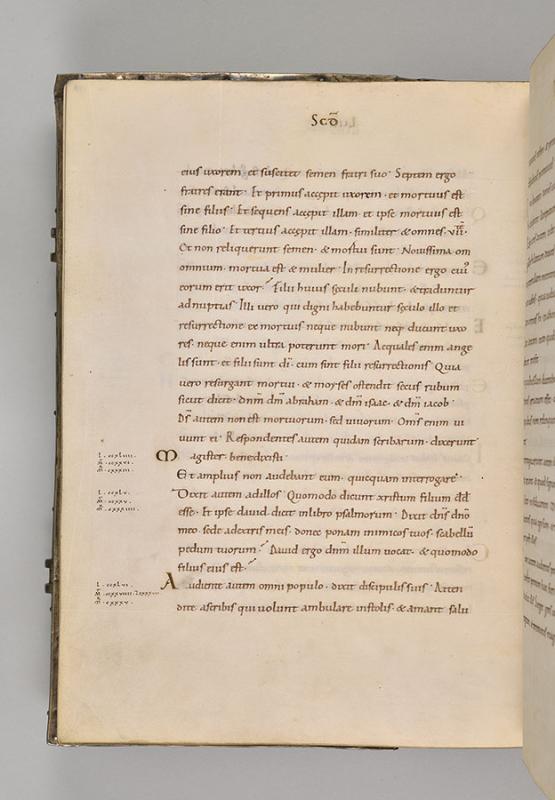 Scdo
eius uxorem · et suscitet semen fratri suo · Septem ergo
fratres erant · Et primus accepit uxorem · et mortuus est
sine filiis · Et sequens accepit illam · et ipse mortuus est
sine filio · Et tertius accepit illam · similiter & omnes ·
Et non reliquerunt semen · & mortui sunt · Nouissima om
omnium · mortua est & mulier · In resurrectione ergo cui'
eorum erit uxor · Filii huius seculi nubunt · & traduntur
ad nuptias · Illi uero qui digni habebuntur seculo illo et
resurrectione ex mortuis neque nubunt neq; ducunt uxo
res · neque enim ultra poterunt mori · Aequales enim ange
lis sunt · et filii sunt di · cum sint filii resurrectionis · Quia
uero resurgant mortui · & moyses ostendit secus rubum
sicut dicit · Dnm dm abraham · & dm isaac · & dm iacob ·
Ds autem non est mortuorum · sed uiuorum · Oms enim ui
uunt ei · Respondentes autem quidam scribarum · dixerunt
Magister · bene dixisti ·
Et amplius non audebant eum · quicquam interrogare ·
Dixit autem ad illos · Quomodo dicunt xpistum filium dd
esse · Et ipse dauid dicit in libro psalmorum · Dixit dns dno
meo · sede a dextris meis · donec ponam inimicos tuos · scabellu
pedum tuorum · Dauid ergo dnm illum uocat · & quomodo
filius eius est ·
Audiente autem omni populo · dixit discipulis suis · Atten
dite a scribis qui uolunt ambulare in stolis · & amant salu